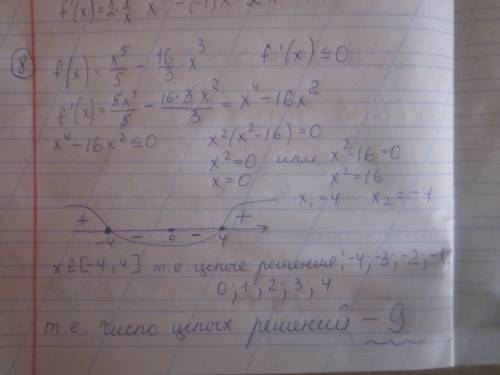 f'(x) = 2 ·
8
f(x) = x⁵/5 - 16/3 · x³ f'(x) ≤ 0
f'(x) = 5x⁴/5 - 16·3x²/3 = x⁴ - 16x²
x⁴ - 16x² ≤ 0 x²(x² - 16) = 0
x² = 0 или x² - 16 = 0
x = 0 x² = 16
x₁ = 4 x₂ = -4
+ - - +
-4 0 4
x ∈ [-4; 4] т.е. целые решения: -4; -3; -2; -1
0; 1; 2; 3; 4
т.е. число целых решений - 9